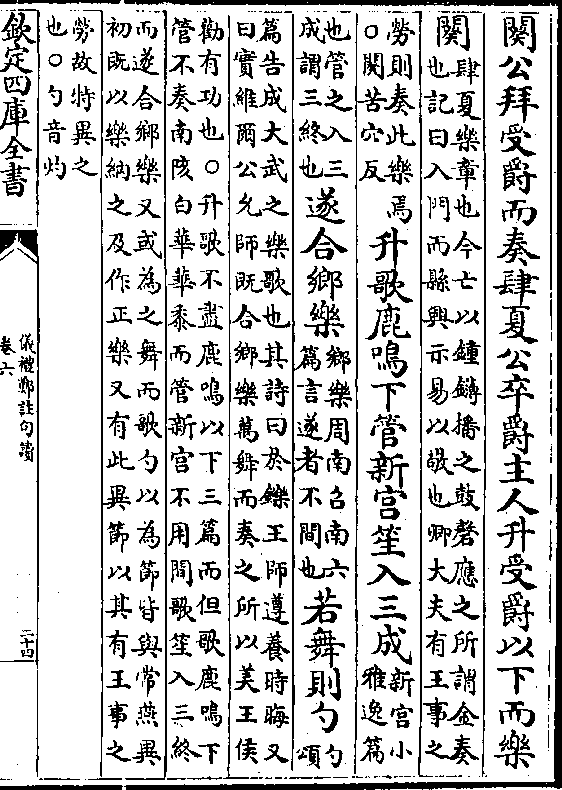 闋公拜受爵而奏肆夏公卒爵主人升受爵以下而樂
闋肆夏樂章也今亡以鐘鎛播之鼓磬應之所謂金奏
也記曰入門而縣興示易以敬也卿大夫有王事之
勞則奏此樂焉
○闋苦穴反
升歌鹿鳴下管新宮笙入三成新宮小
雅逸篇
也管之入三
成謂三終也
遂合鄉樂鄉樂周南召南六
篇言遂者不間也
若舞則勺勺
頌
篇告成大武之樂歌也其詩曰於鑠王師遵養時晦又
曰實維爾公允師既合鄉樂萬舞而奏之所以美王侯
勸有功也○升歌不盡鹿鳴以下三篇而但歌鹿鳴下
管不奏南陔白華華黍而管新宮不用間歌笙入三終
而遂合鄉樂又或為之舞而歌勺以為節皆與常燕異
初既以樂納之及作正樂又有此異節以其有王事之
勞故特異之
也○勺音灼
欽定四庫全書
儀禮鄭註句讀
卷六
三十四